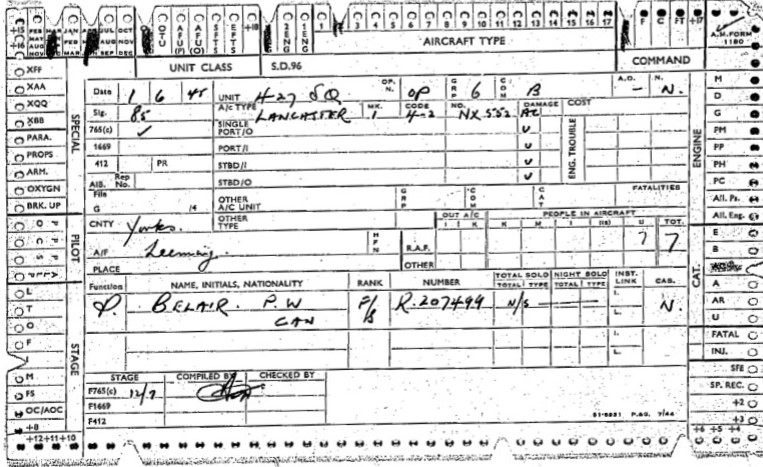 +15 FEB MAR JAN APR JUL OCT
+16 MAY FEB MAY AUG NOV
+16 NOV JUN SEP DEC
OTU AFU (P) AFU (O) SFTS EFTS +18 2ENG 1ENG
1 3 4 5 6 7 8 9 10 11 12 13 14 15 16 17
F C FT +17
A.M. FORM 1180
UNIT CLASS S.D.96 AIRCRAFT TYPE COMMAND
XFF
XAA
XQQ
XBB
PARA.
PROPS
ARM.
OXYGEN
BRK. UP
SPECIAL
PILOT
STAGE
L
T
O
F
I
M
FS
OC/AOC
+8
+12 +11 +10
Date 1 6 45 UNIT 427 SQ OP. N. OP GRP 6 COM B A.D. - N. N.
Sig. 85 A/C TYPE LANCASTER MK. 1 CODE 4-2 NO. NX 552 DAMAGE AC COST
765(c) ✓ SINGLE PORT/O U ENG. TROUBLE
1669 PORT/I U
412 PR STBD/I U
AIB. Rep No. STBD/O U
File G /4 OTHER A/C UNIT GRP COM CAT FATALITIES
CNTY Yorks. OTHER TYPE OUT A/C PEOPLE IN AIRCRAFT
I K K M I (IS) U TOT.
A/F Leeming. R.A.F. 7 7
PLACE OTHER
Function NAME, INITIALS, NATIONALITY RANK NUMBER TOTAL SOLO NIGHT SOLO INST. LINK CAS.
TOTAL TYPE TOTAL TYPE
P. BELAIR. P.W F/S R.207499 N/S I. L. N.
CAN
I.
L.
STAGE COMPILED BY CHECKED BY
F765(c) 12/7
F1669
F412
51-8851 P.60. 7/44
M
D
G
PM
PP
PH
PC
All. Ps.
All. Eng.
ENGINE
E
B
A
AR
U
CAT.
FATAL
INJ.
SFE
SP. REC.
+2
+3
+6 +5 +4